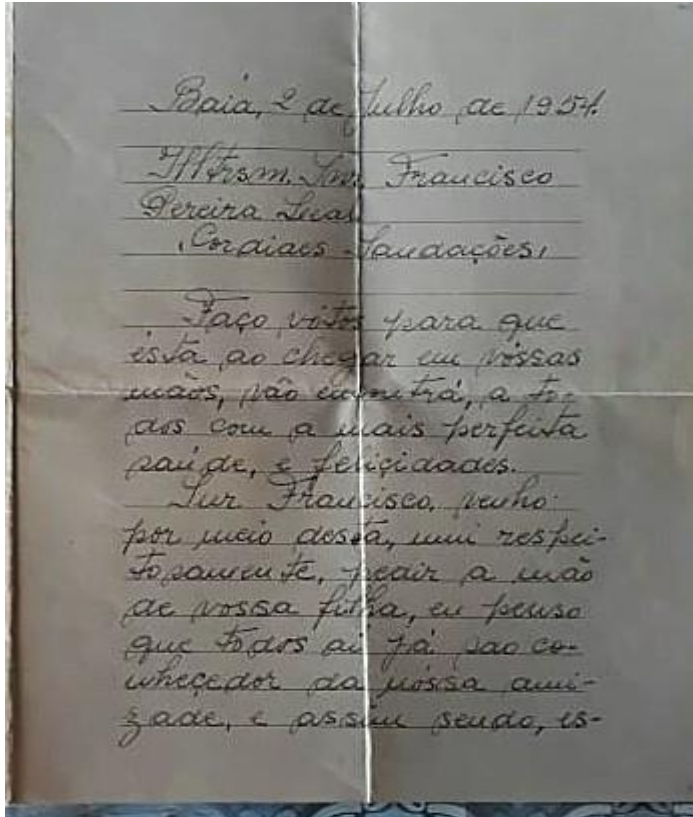 Baía, 2 de Julho de 1954.
Illtrsm. Snr. Francisco
Pereira
"Cordiaes Saudações,
Faço vótos para que
ésta ao chegar em vóssas
mãos, vão encontrá, a to-
dos com a mais perfeita
saúde, e feliçidades.
Snr Francisco, venho
por meio desta, mui respei-
tosamente, pedir a mão
de vossa filha, eu penso
que todos aí já sao co-
nheçedor da nóssa ami-
zade, e assim sendo, es-